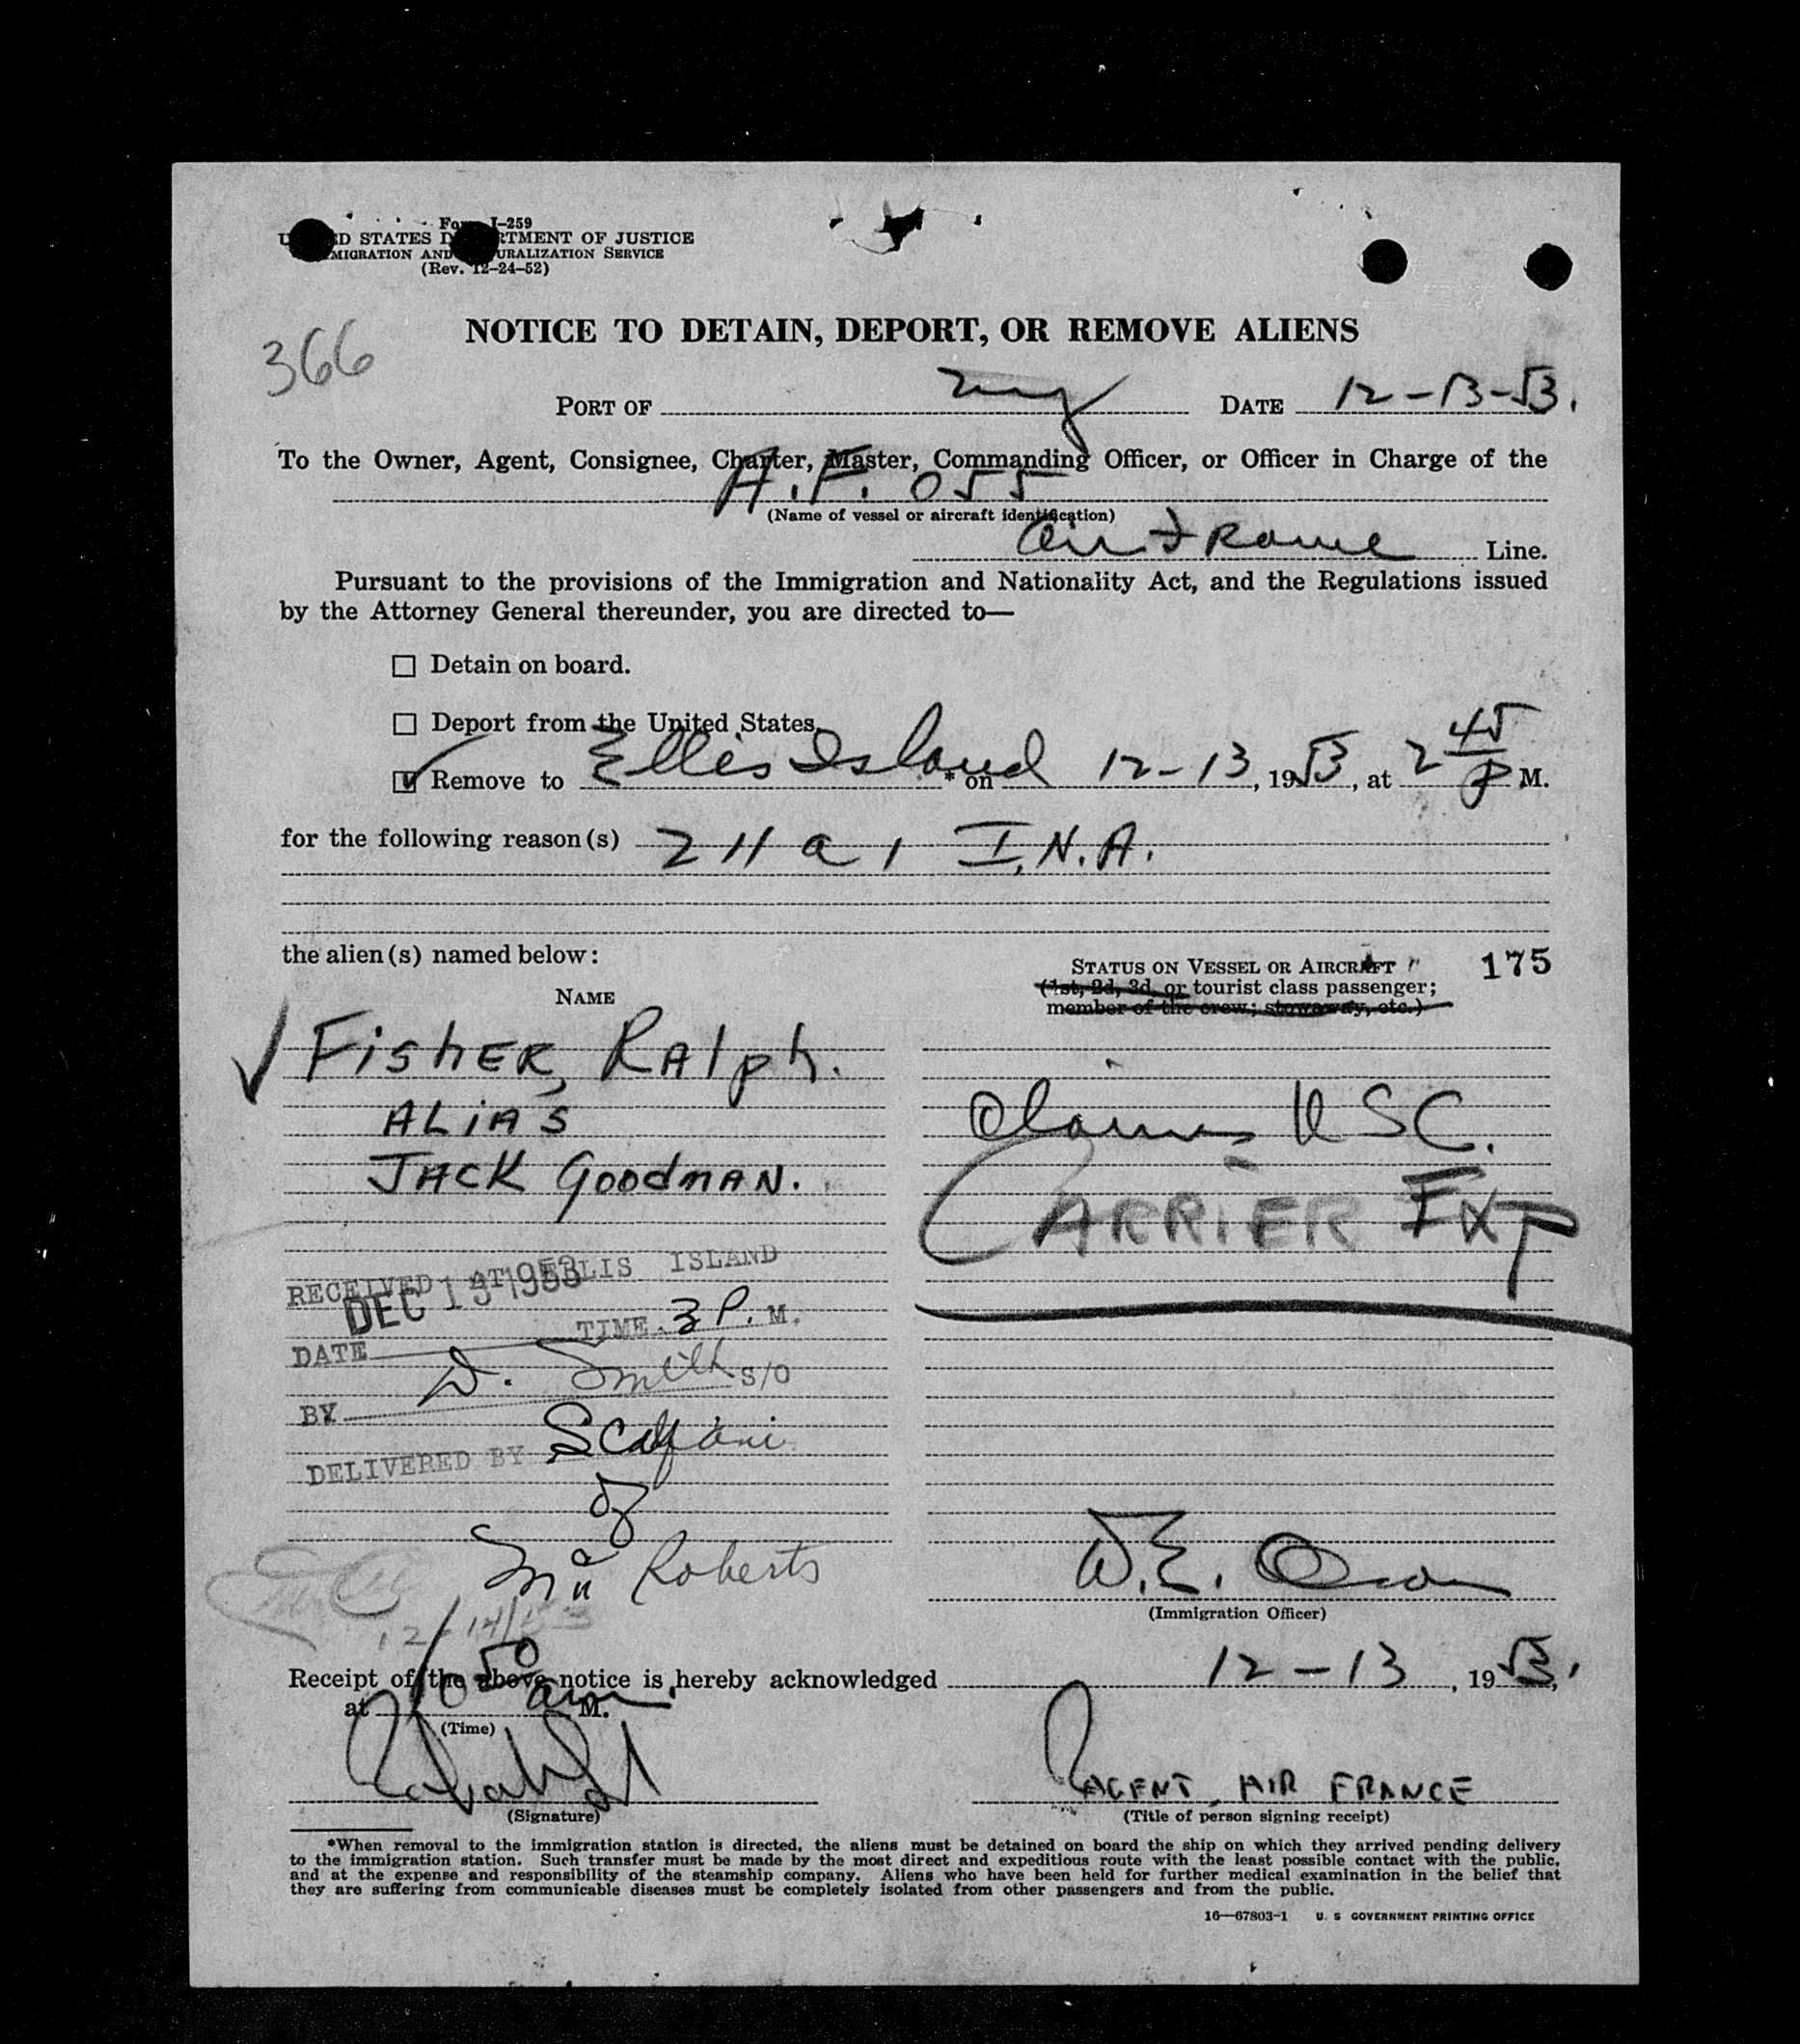 Form I-259
UNITED STATES DEPARTMENT OF JUSTICE
IMMIGRATION AND NATURALIZATION SERVICE
(Rev. 12-24-52)
366
NOTICE TO DETAIN, DEPORT, OR REMOVE ALIENS
PORT OF NY DATE 12-13-53.
To the Owner, Agent, Consignee, Charter, Master, Commanding Officer, or Officer in Charge of the
A.F. 055
(Name of vessel or aircraft identification)
Air France Line.
Pursuant to the provisions of the Immigration and Nationality Act, and the Regulations issued
by the Attorney General thereunder, you are directed to—
☐ Detain on board.
☐ Deport from the United States.
☑ Remove to Ellis Island * on 12-13, 1953, at 2 45 P M.
for the following reason(s) 211 a 1 I.N.A.
the alien(s) named below:
STATUS ON VESSEL OR AIRCRAFT 175
(1st, 2d, 3d, or tourist class passenger;
member of the crew; stowaway, etc.)
NAME
FisHER, RAlph.
ALiAS
JACK GOODMAN.
Claims USC.
CARRIER EXP
RECEIVED AT ELLIS ISLAND
DEC 13 1953
TIME 3 P. M.
DATE
BY D. Smith S/O
DELIVERED BY Scafani
of
Roberts
12/14/53
W.E.
(Immigration Officer)
Receipt of the above notice is hereby acknowledged 12-13, 1953.
at 10 50 am M.
(Time)
AGENT, AIR FRANCE
(Signature)
(Title of person signing receipt)
*When removal to the immigration station is directed, the aliens must be detained on board the ship on which they arrived pending delivery
to the immigration station. Such transfer must be made by the most direct and expeditious route with the least possible contact with the public,
and at the expense and responsibility of the steamship company. Aliens who have been held for further medical examination in the belief that
they are suffering from communicable diseases must be completely isolated from other passengers and from the public.
16—67803-1 U. S GOVERNMENT PRINTING OFFICE